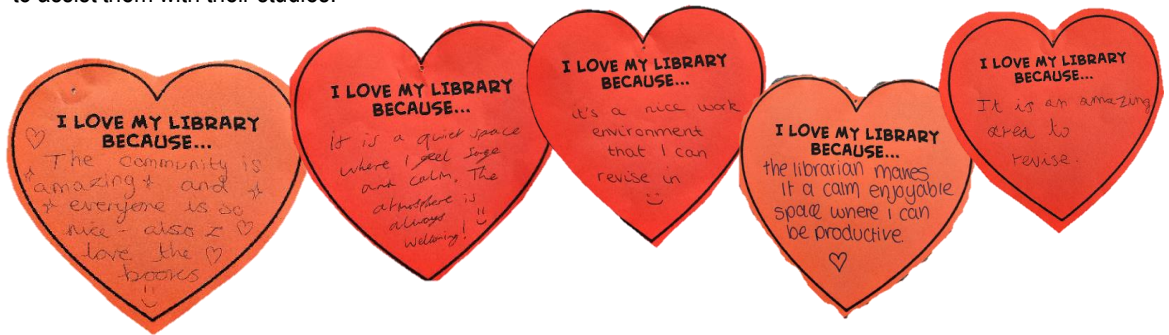 to assist them with their studies.
I LOVE MY LIBRARY
BECAUSE...
The community is
amazing and
everyone is so
nice - also I
love the
books
I LOVE MY LIBRARY
BECAUSE...
it is a quiet space
where I feel safe
and calm. The
atmosphere is
always
welcoming!
I LOVE MY LIBRARY
BECAUSE...
it's a nice work
environment
that I can
revise in
I LOVE MY LIBRARY
BECAUSE...
the librarian makes
it a calm enjoyable
space where i can
be productive.
I LOVE MY LIBRARY
BECAUSE...
It is an amazing
area to
revise.